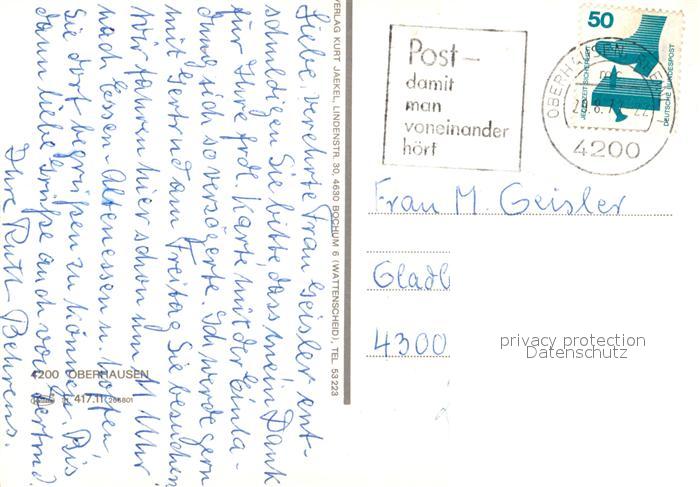 Liebe, verehrte Frau Geisler, ent-
schuldigen Sie bitte, dass mein Dank
für Ihre frdl. Karte mit der Einla-
dung sich so verzögerte. Ich werde gern
mit Gertrud am Freitag Sie besuchen
Wir fahren hier schon um 11 Uhr
nach Essen-Altenessen u. hoffen
Sie dort begrüßen zu können. Bis
dann liebe Grüße auch von Gertrud
Ihre Ruth Behrens.
4200 OBERHAUSEN
417.11 266801
VERLAG KURT JAEKEL, LINDENSTR. 30, 4630 BOCHUM 6 (WATTENSCHEID), TEL. 53223
Post–
damit
man
voneinander
hört
OBERHAUSEN
mc
22
4200
50
JEDERZEIT SICHERHEIT
DEUTSCHE BUNDESPOST
Frau M. Geisler
Gladb
4300
privacy protection
Datenschutz